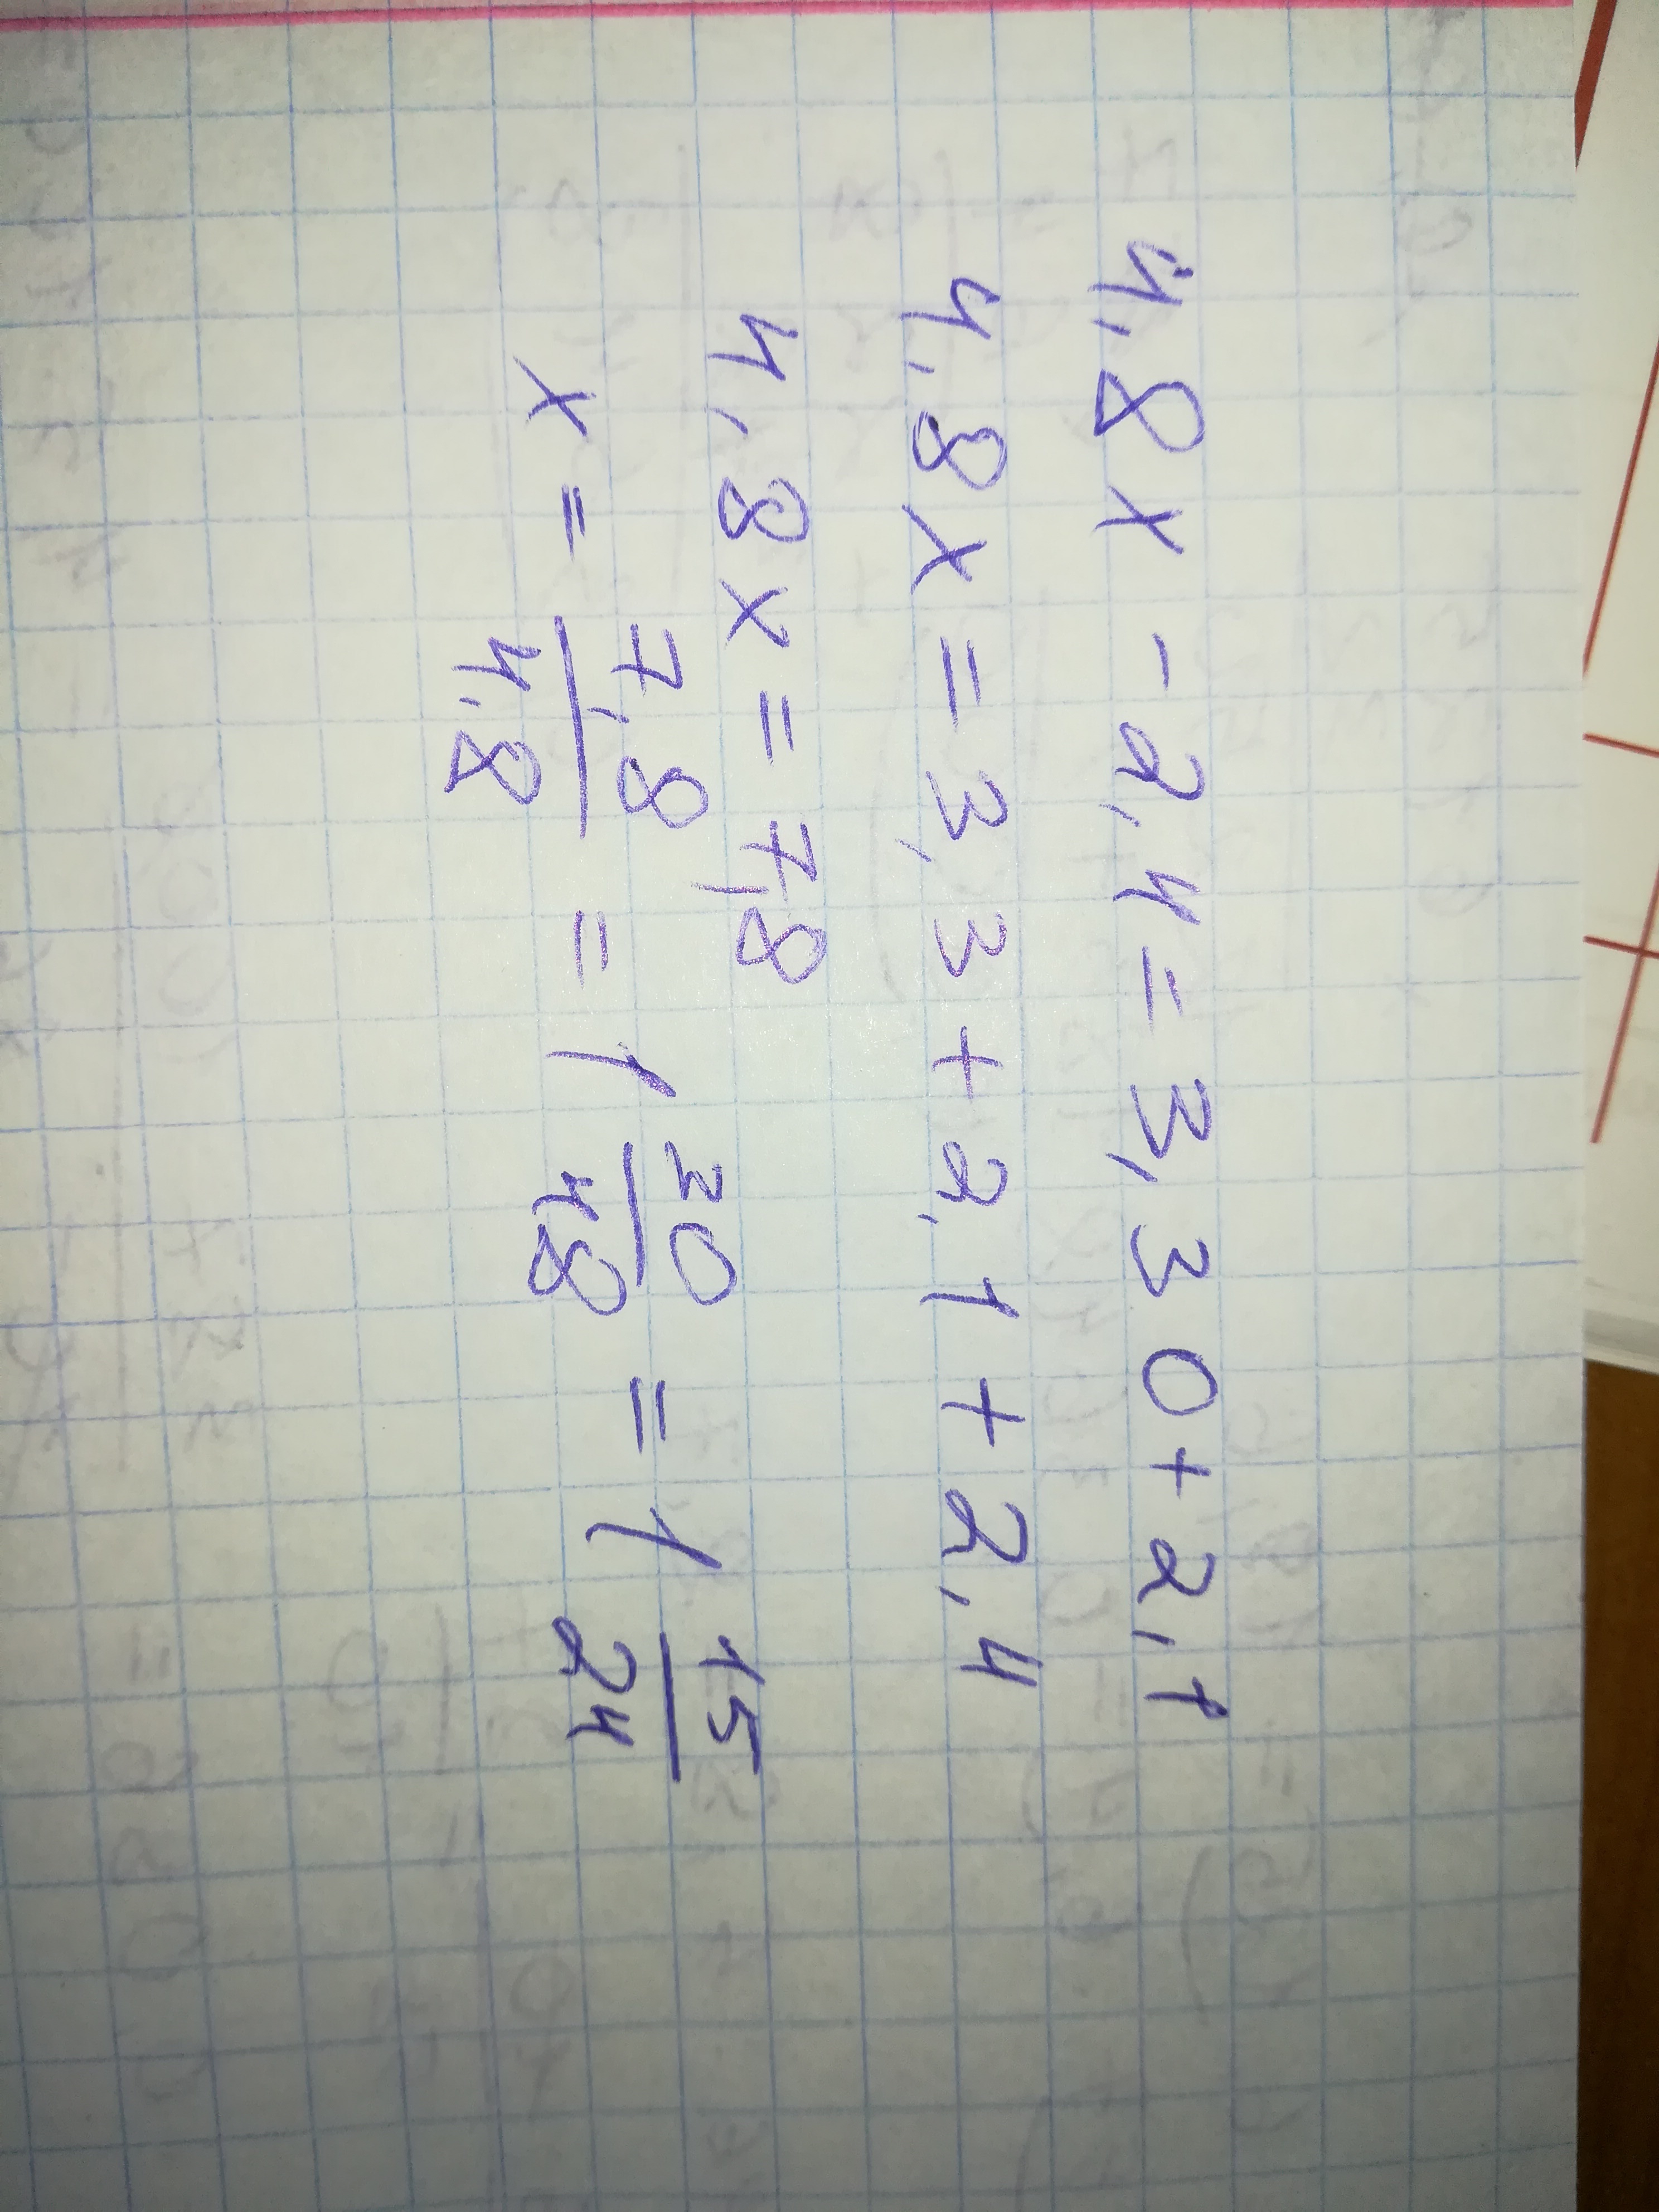 4,8x - 2,4 = 3,30 + 2,1
4,8x = 3,3 + 2,1 + 2,4
4,8x = 7,8
x = 7,8/4,8 = 1 30/48 = 1 15/24